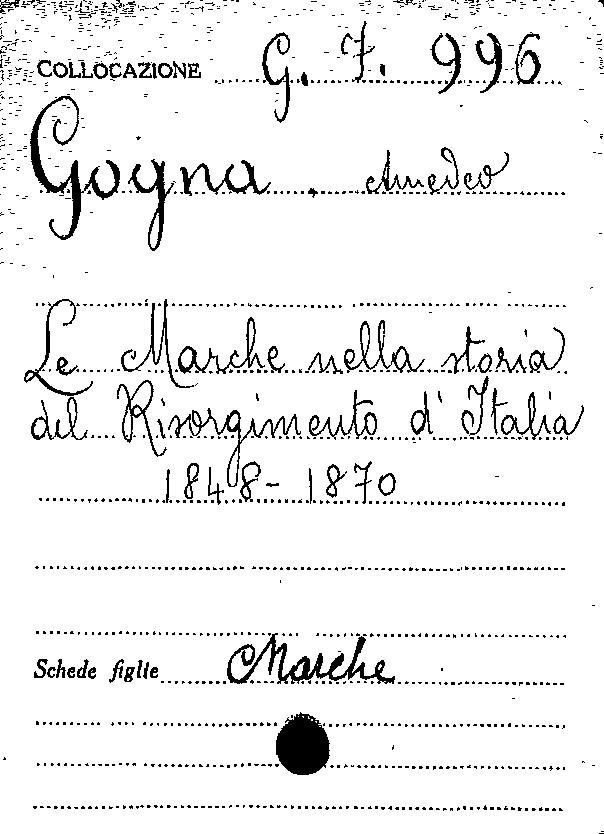 COLLOCAZIONE G. F. 996
Gogna. Amedeo
Le Marche nella storia
del Risorgimento d'Italia
1848-1870
Schede figlie Marche